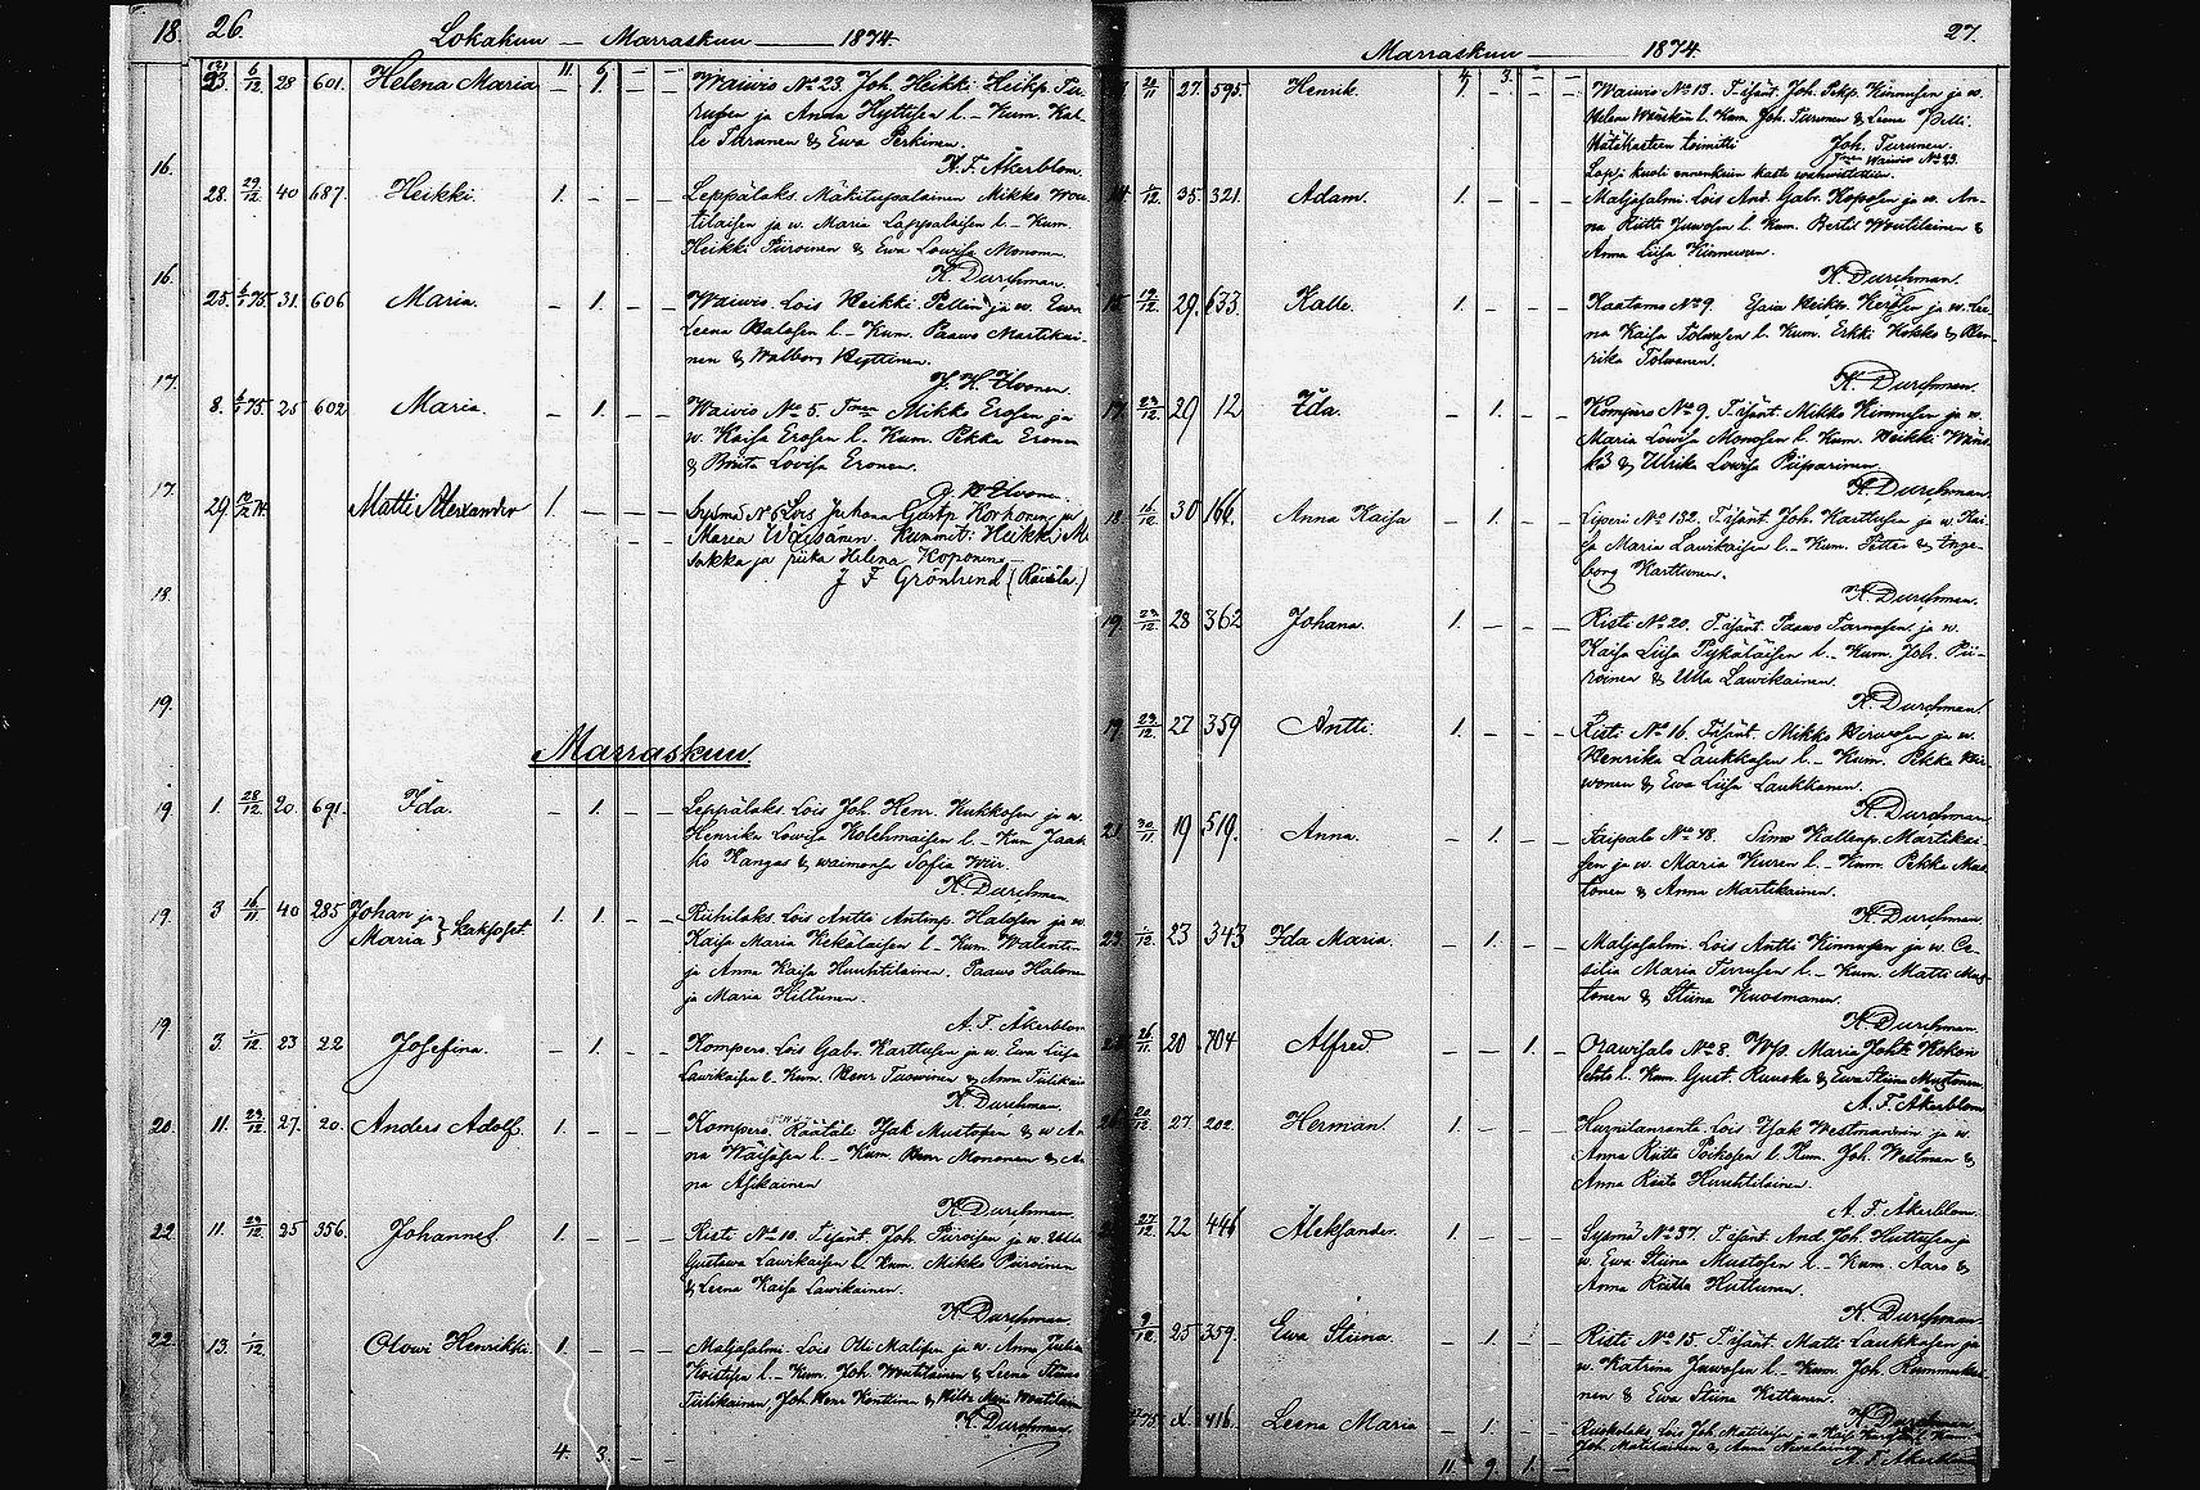 18. 26. Lokakuu — Marraskuu — 1874.
11. 6. — —
23. 6/12 28 601. Helena Maria — 1. — — Waiwio No 23. Joh. Heikki Heikp. Tu-
rusen ja Anna Hyttisen l. – Kum. Kal-
le Turunen & Ewa Perkinen.
A. F. Åkerblom.
16.
28. 29/12 40 687. Heikki. 1. — — — Leppälaks. Mäkitupalainen Mikko Wou-
tilaisen ja w. Maria Lappalaisen l. – Kum.
Heikki Piiroinen & Ewa Lowisa Mononen.
K. Durchman.
16.
25. 6/1 75. 31. 606 Maria. — 1. — — Waiwio. Lois Heikki Pellin ja w. Ewa
Leena Halosen l. – Kum. Paawo Martikai-
nen & Walborg Hyttinen.
J. H. Ilvonen.
17.
8. 6/1 75. 25 602 Maria. — 1. — — Waiwio No 5. Mikko Erosen ja
w. Kaisa Erosen l. Kum. Pekka Eronen
& Briita Lovisa Eronen.
Ilvonen.
17.
29. Matti Alexander 1. — — — Sysmä No 6 Lois Juhana Gustp Korhonen ja
Maria Wäisänen. Kummit: Heikki
Sakka ja piika Helena Koponen
J F Grönlund (Räisälä.)
18.
19.
Marraskuu.
19. 1. 28/12 20. 691. Ida. 1. — — Leppälaks. Lois Joh. Henr. Kukkosen ja w.
Henrika Lowisa Kolehmaisen l. – Kum Jaak-
ko Kangas & waimonsa Sofia Wiir.
K. Durchman.
19. 3 16/11 40 285 Johan ja 1. 1. — — Riihilaks. Lois Antti Antinp. Halosen ja w.
Maria } kaksoset. Kaisa Maria Kekäläisen l – Kum. Walentin
ja Anna Kaisa Huuhtilainen. Paawo Halonen
ja Maria Hiltunen.
A. F. Åkerblom
19. 3. 1/12. 23 22 Josefina. — 1. — — Kompero. Lois Gabr. Karttusen ja w. Ewa Liisa
Lawikaisen l. Kum. Henr Tuowinen & Anna Tiilikain
K. Durchman.
20. 11. 29/12. 27. 20. Anders Adolf. 1. — — — Kompero. Räätäli Isak Mustosen & w An
na Wäisäsen l. – Kum. Henr Mononen & An
na Asikainen
K. Durchman.
22 11. 29/12. 25 356. Johannes. 1. — — — Risti No 10. T. isänt. Joh. Piiroisen ja w. Ulla
Gustawa Lawikaisen l. Kum. Mikko Piiroinen
& Leena Kaisa Lawikainen.
K. Durchman.
22. 13. 1/12. Olowi Henrikki. 1. — — — Maljasalmi. Lois Olli Malisen ja w. Anna
Koistisen l. – Kum. Joh. Woutilainen & Leena Stiina
Tiilikainen, Joh. Henr Konttinen & Hilda Maria Woutilain
K. Durchman.
4. 3. — —
Marraskuu — 1874. 27.
4. 3. — —
20/11 27. 595. Henrik. 1. — — — Waiwio No 13. T. isänt. Joh. Pekp. Kinnusen ja w.
Helena Wänskän l. Kum. Joh. Turunen & Leena Pelli.
Hätäkasteen toimitti Joh. Turunen.
Waiwio No 23.
Lapsi kuoli ennenkuin kaste wahwistettiin.
14. 1/12. 35. 321. Adam. 1. — — — Maljasalmi. Lois And. Gabr. Koposen ja w. An-
na Riitta Juwosen l. Kum. Bertil Woutilainen &
Anna Liisa Kinnunen.
K. Durchman.
15. 19/12. 29. 633. Kalle. 1. — — — Kaatamo No 9. Esaia Heikp. Kerosen ja w. Lee-
na Kaisa Tolwasen l. Kum. Erkki Kokko & Hen-
rika Tolwanen.
K. Durchman.
17. 23/12. 29 12 Ida. — 1. — — Kompero No 9. T. isänt. Mikko Kinnusen ja w.
Maria Lowisa Monosen l. Kum. Heikki Wäns-
kä & Ulrika Lowisa Piiparinen.
K. Durchman.
18. 16/12. 30 166. Anna Kaisa — 1. — — Liperi No 132. T. isänt. Joh. Karttusen ja w. Kai-
sa Maria Lawikaisen l. – Kum. Petter & Inge-
borg Karttunen.
K. Durchman.
19. 29/12. 28 362 Johana. 1. — — — Risti No 20. T. isänt. Paawo Tarnasen ja w.
Kaisa Liisa Pykäläisen l. – Kum. Joh. Pii-
roinen & Ulla Lawikainen.
K. Durchman.
19. 29/12. 27 359 Antti. 1. — — — Risti No 16. T. isänt. Mikko Hirwosen ja w.
Henrika Laukkasen l. – Kum. Pekka Hir-
wonen & Ewa Liisa Laukkanen.
K. Durchman
21. 30/11. 19 519. Anna. — 1. — — Taipale No 48. Simo Kallenp. Martikai-
sen ja w. Maria Kuren l. – Kum. Pekka Mus-
tonen & Anna Martikainen.
K. Durchman.
23. 1/12. 23 343 Ida Maria. — 1. — — Maljasalmi. Lois Antti Kinnusen ja w. Ce-
silia Maria Turusen l. – Kum. Matti Mus-
tonen & Stiina Kuosmanen.
K. Durchman.
26/11. 20 704 Alfred. — — 1. — Orawisalo No 8. Wp. Maria Joht. Kokon
lehto l. Kum. Gust. Ruuska & Ewa Stiina Mustonen.
A. F. Åkerblom
20/12. 27. 202. Herman. 1. — — — Lois Isak Westmannin ja w.
Anna Riitta Poikosen l. Kum. Joh. Westman &
Anna Riitta Huuhtilainen.
A. F. Åkerblom.
27/12. 22 446 Aleksander. 1. — — — Sysmä No 37. T. isänt. And. Joh. Huttusen ja
w. Ewa Stiina Mustosen l. – Kum. Aaro &
Anna Riitta Huttunen.
K. Durchman.
9/12. 25 359. Ewa Stiina. — 1. — — Risti No 15. T. isänt. Matti Laukkasen ja
w. Katrina Juwosen l. – Kum. Joh. Rummukai-
nen & Ewa Stiina Kettunen.
K. Durchman.
416. Leena Maria — 1. — — Ruokolaks. Lois Joh. Matilaisen
Joh. Matilainen & Anna
A. F. Åkerblom
11. 9. 1. —